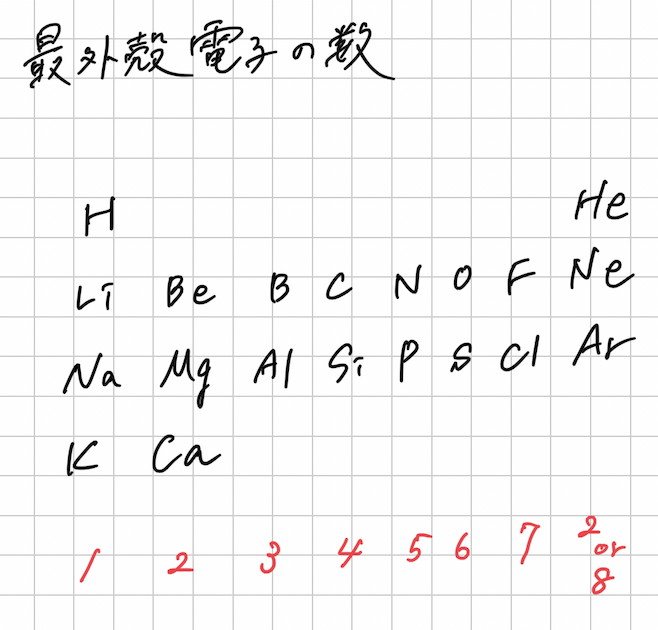 最外殻電子の数
H He
Li Be B C N O F Ne
Na Mg Al Si P S Cl Ar
K Ca
1 2 3 4 5 6 7 2 or 8